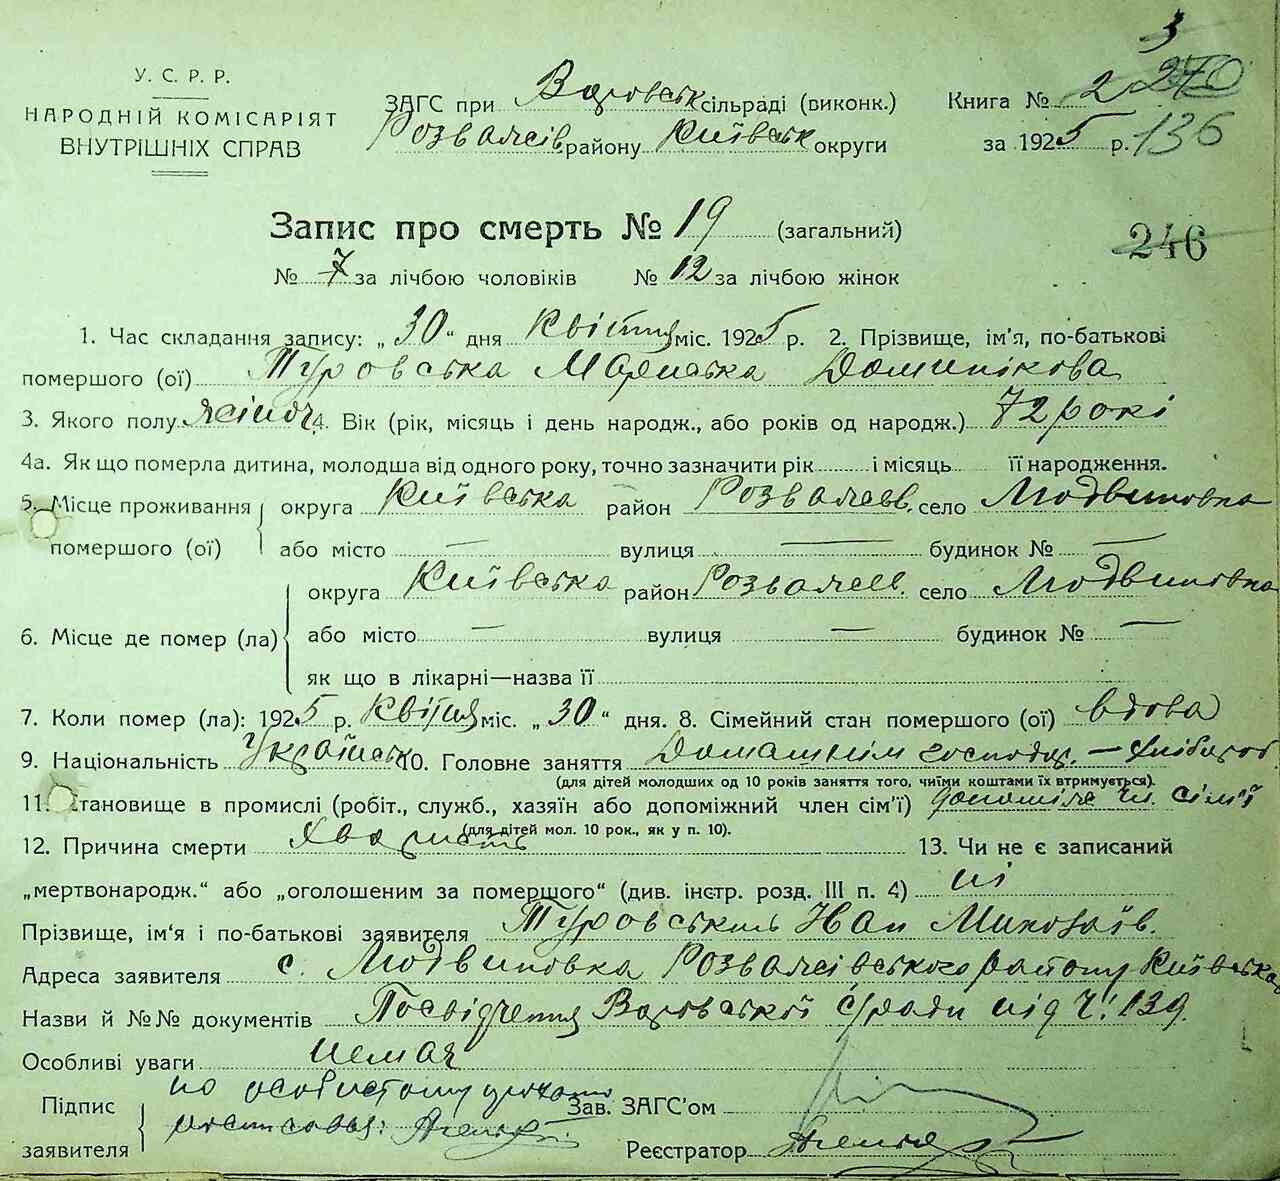 3
У. С. Р. Р.
НАРОДНІЙ КОМІСАРІЯТ
ВНУТРІШНІХ СПРАВ
ЗАГС при Варовськ сільраді (виконк.)
Розважів. району Київськ округи
Книга № 2 270
за 1925 р. 136
Запис про смерть № 19 (загальний)
246
№ 7 за лічбою чоловіків № 12 за лічбою жінок
1. Час складання запису: „30“ дня Квітня міс. 1925 р. 2. Прізвище, ім'я, по-батькові
помершого (ої) Туровська Домінікова
3. Якого полу жіноч. 4. Вік (рік, місяць і день народж., або років од народж.) 72 рокі
4а. Як що померла дитина, молодша від одного року, точно зазначити рік і місяць її народження.
5. Місце проживання округа Київська район Розважев. село Людвиновка
помершого (ої) або місто — вулиця — будинок № —
округа Київська район Розважев. село Людвиновка
6. Місце де помер (ла) або місто — вулиця — будинок № —
як що в лікарні—назва її
7. Коли помер (ла): 1925 р. Квітня міс. „30“ дня. 8. Сімейний стан помершого (ої) вдова
9. Національність Українська 10. Головне заняття Домашнім господар. — хлібороб
(для дітей молодших од 10 років заняття того, чиїми коштами їх втримується).
11. Становище в промислі (робіт., служб., хазяїн або допоміжний член сім'ї) допоміж чл. сім'ї
(для дітей мол. 10 рок., як у п. 10).
12. Причина смерти 13. Чи не є записаний
„мертвонародж.“ або „оголошеним за помершого“ (див. інстр. розд. III п. 4) ні
Прізвище, ім'я і по-батькові заявителя Туровський Іван Миколаїв.
Адреса заявителя с. Людвиновка Розважівського району Київської
Назви й №№ документів Посвідчення Варовської с/ради під ч: 139.
Особливі уваги немає
Підпис по особистому
заявителя
Зав. ЗАГС'ом
Реєстратор